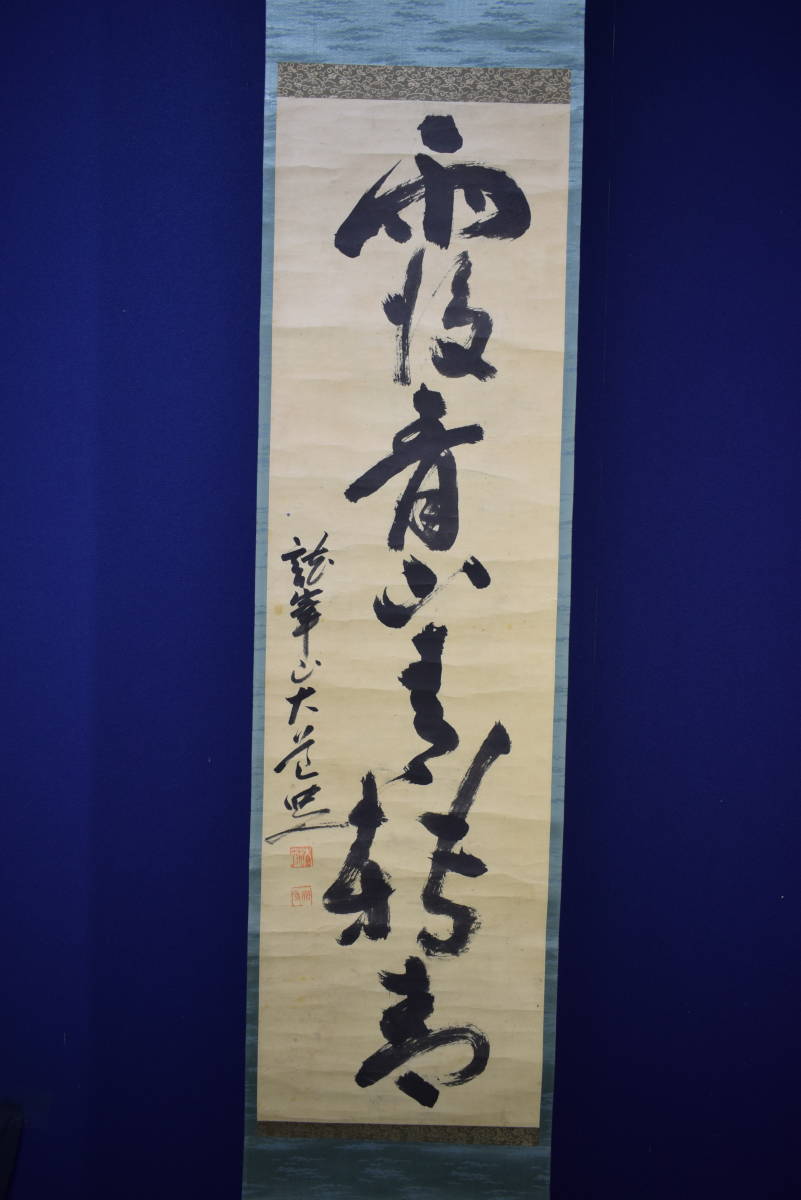 雨後青山青轉青
龍峯山大道書